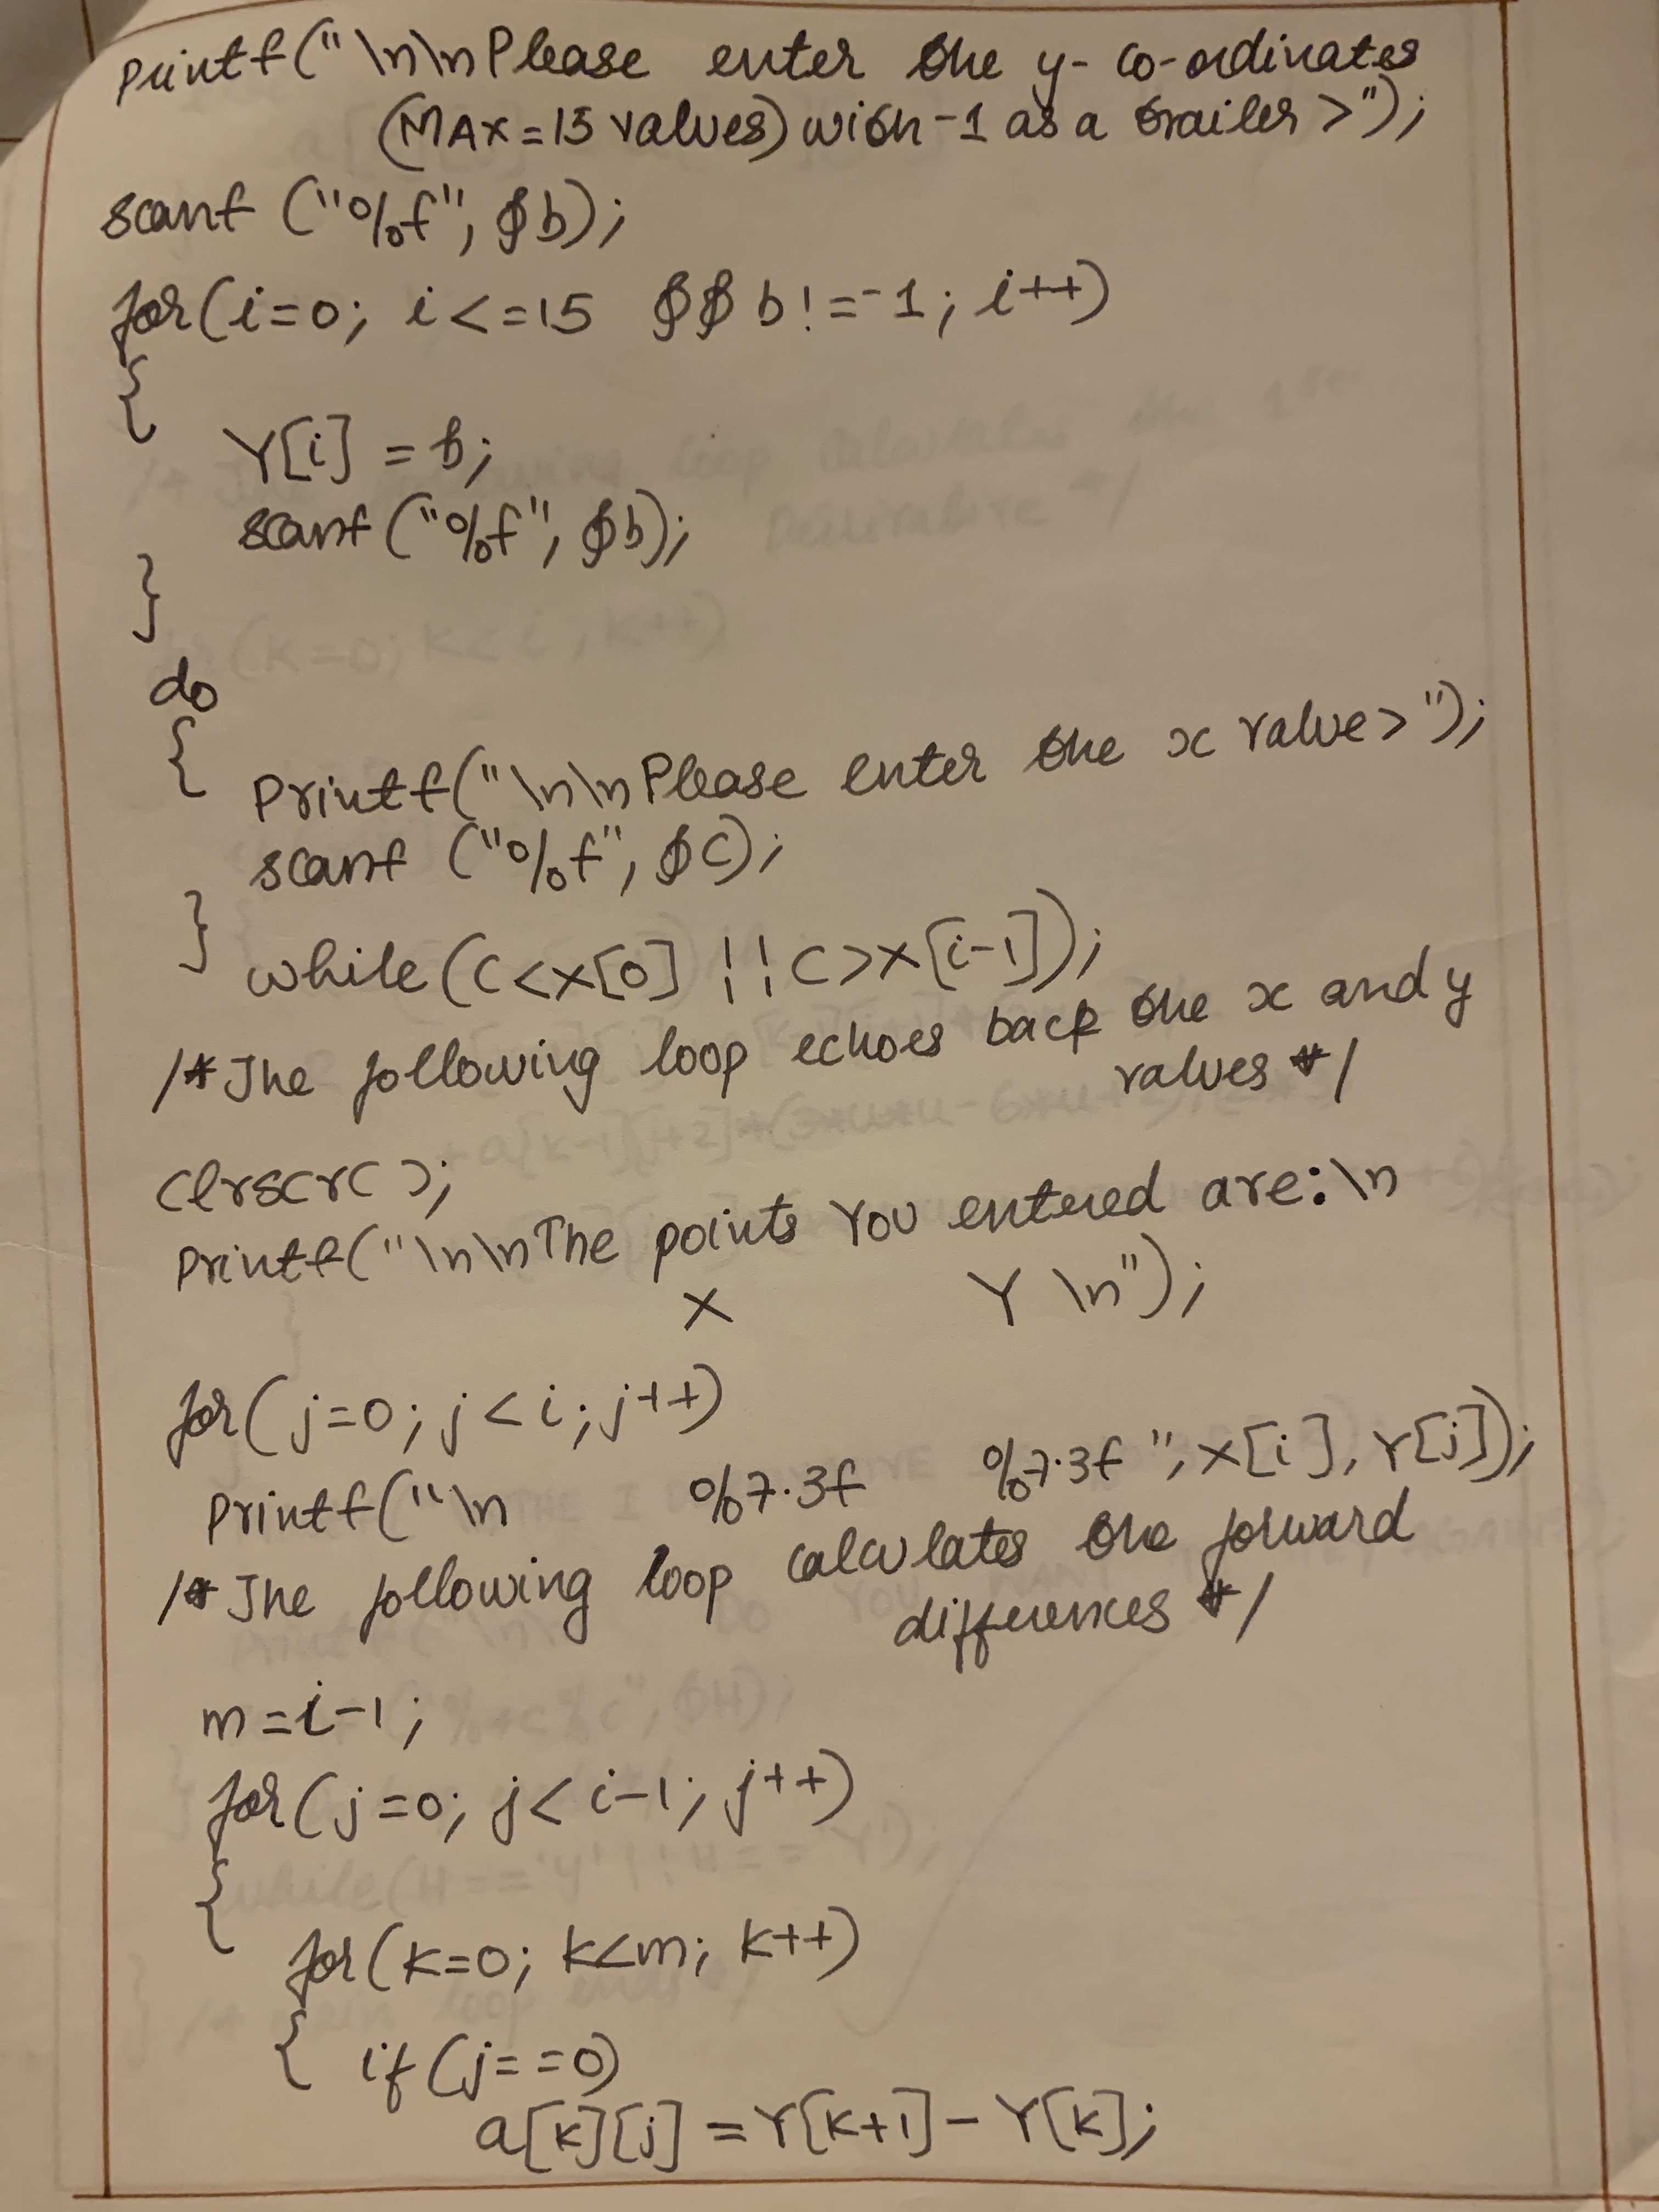 printf("\n\nPlease enter the y-co-ordinates
(MAX=15 values) with -1 as a trailer >");
scanf ("%f", &b);
for(i=0; i<=15 && b!=-1; i++)
{
Y[i] = b;
scanf("%f", &b);
}
do
{
Printf("\n\nPlease enter the x value>");
scanf ("%f", &C);
}
while(C<x[0] ||C>x[i-1]);
/*The following loop echoes back the x and y
values */
Clrscr( );
Printf("\n\nThe points You entered are:\n
X Y \n");
for(j=0; j<i; j++)
Printf("\n %7.3f %7.3f ", x[i], Y[j]);
/* The following loop calculates the forward
differences */
m=i-1;
for(j=0; j<i-1; j++)
{
for(k=0; k<m; k++)
{ if(j==0)
a[k][j] = Y[k+1]-Y[k];